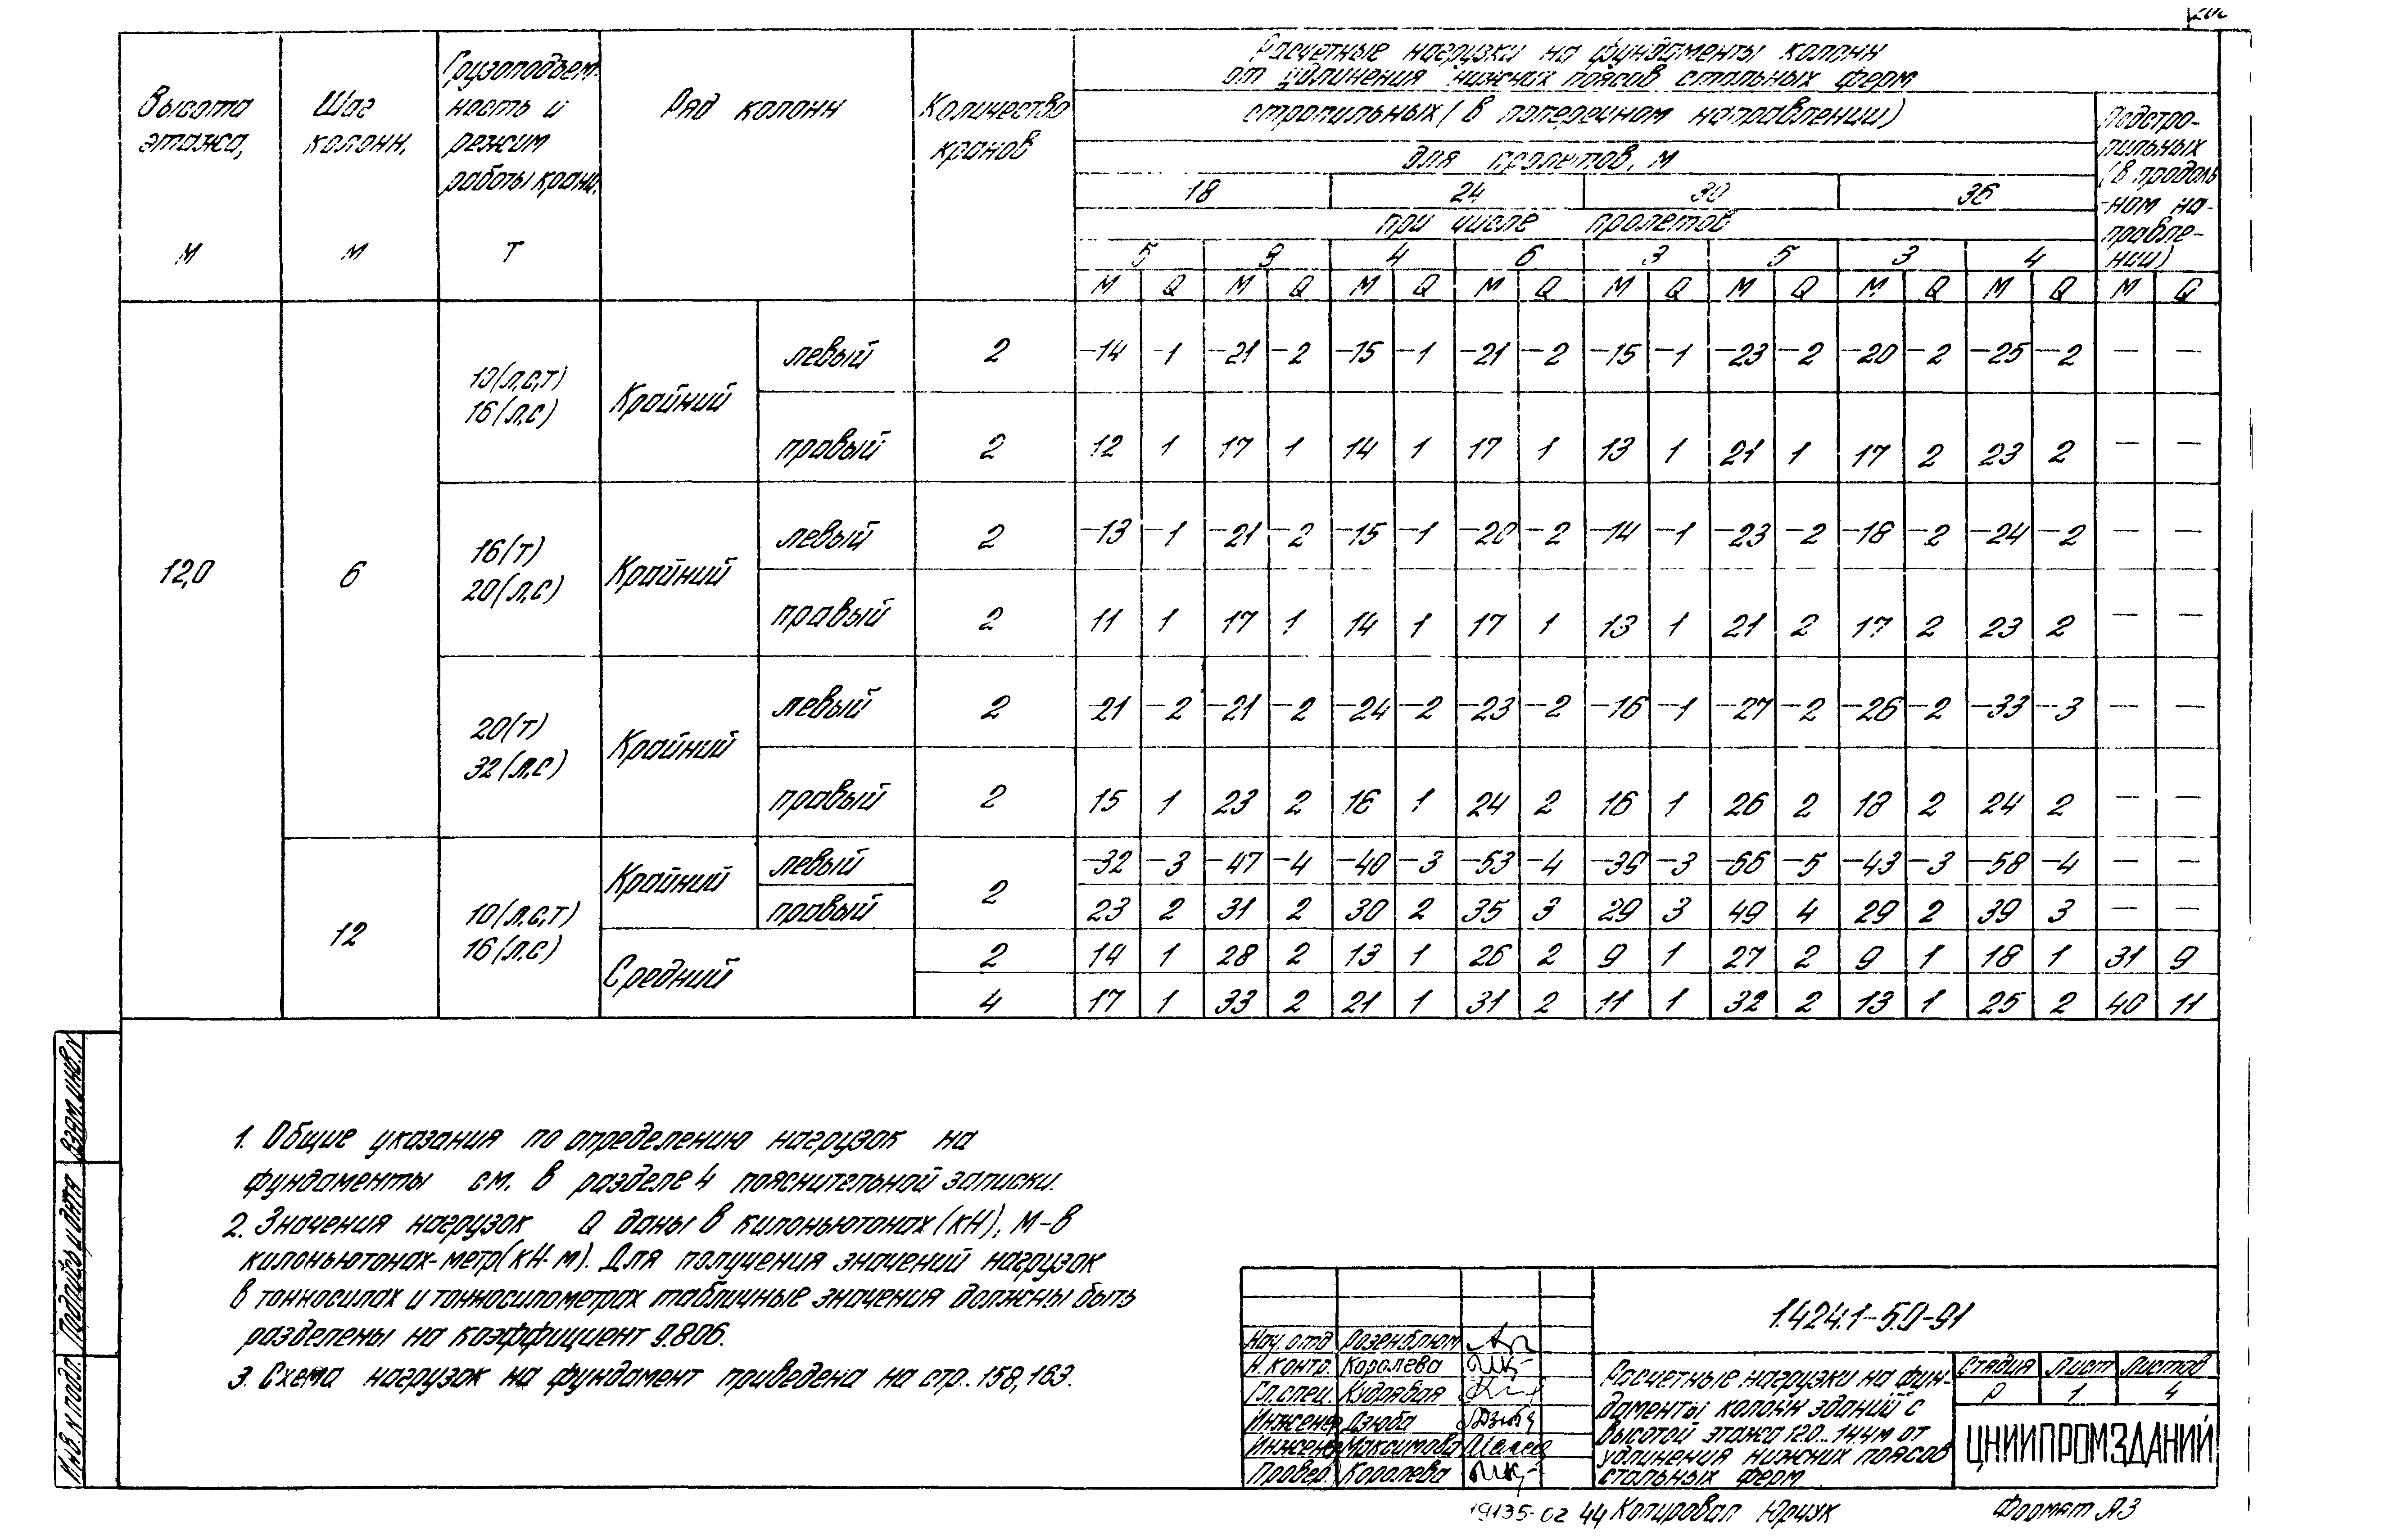 Высота этажа, М
Шаг колонн, М
Грузоподъем-
ность и
режим
работы крана,
Т
Ряд колонн
Количество
кранов
Расчетные нагрузки на фундаменты колонн
от удлинения нижних поясов стальных ферм
стропильных (в поперечном направлении)
Подстро-
пильных
(в продоль
ном на-
правле-
нии)
для пролетов, м
18 24 30 36
при числе пролетов
5 9 4 6 3 5 3 4
М Q М Q М Q М Q М Q М Q М Q М Q М Q
12,0 6
10(л,с,т)
16(л,с)
Крайний
левый 2 -14 -1 -21 -2 -15 -1 -21 -2 -15 -1 -23 -2 -20 -2 -25 -2 — —
правый 2 12 1 17 1 14 1 17 1 13 1 21 1 17 2 23 2 — —
16(т)
20(л,с)
Крайний
левый 2 -13 -1 -21 -2 -15 -1 -20 -2 -14 -1 -23 -2 -18 -2 -24 -2 — —
правый 2 11 1 17 1 14 1 17 1 13 1 21 2 17 2 23 2 — —
20(т)
32(л,с)
Крайний
левый 2 -21 -2 -21 -2 -24 -2 -23 -2 -16 -1 -27 -2 -26 -2 -33 -3 — —
правый 2 15 1 23 2 16 1 24 2 16 1 26 2 18 2 24 2 — —
12
10(л,с,т)
16(л,с)
Крайний 2
левый -32 -3 -47 -4 -40 -3 -53 -4 -39 -3 -66 -5 -43 -3 -58 -4 — —
правый 23 2 31 2 30 2 35 3 29 3 49 4 29 2 39 3 — —
Средний
2 14 1 28 2 13 1 26 2 9 1 27 2 9 1 18 1 31 9
4 17 1 33 2 21 1 31 2 11 1 32 2 13 1 25 2 40 11
1. Общие указания по определению нагрузок на
фундаменты см. в разделе 4 пояснительной записки.
2. Значения нагрузок Q даны в килоньютонах (кН), М-в
килоньютонах-метр(кН·м). Для получения значений нагрузок
в тонносилах и тонносилометрах табличные значения должны быть
разделены на коэффициент 9.806.
3. Схема нагрузок на фундамент приведена на стр. 158, 163.
Взам. инв. N
Подпись и дата
Инв. N подл.
Нач. отд Розенблюм
Н. контр. Королева
Гл. спец. Кудрявая
Инженер Дзюба Дзюба
Инженер Максимова
Провер. Королева
1.424.1-5.0-91
Расчетные нагрузки на фун-
даменты колонн зданий с
высотой этажа 12.0...14.4м от
удлинения нижних поясов
стальных ферм
Стадия Лист Листов
Р 1 4
ЦНИИПРОМЗДАНИЙ
19135-02 44 Копировал Юрчук Формат А3